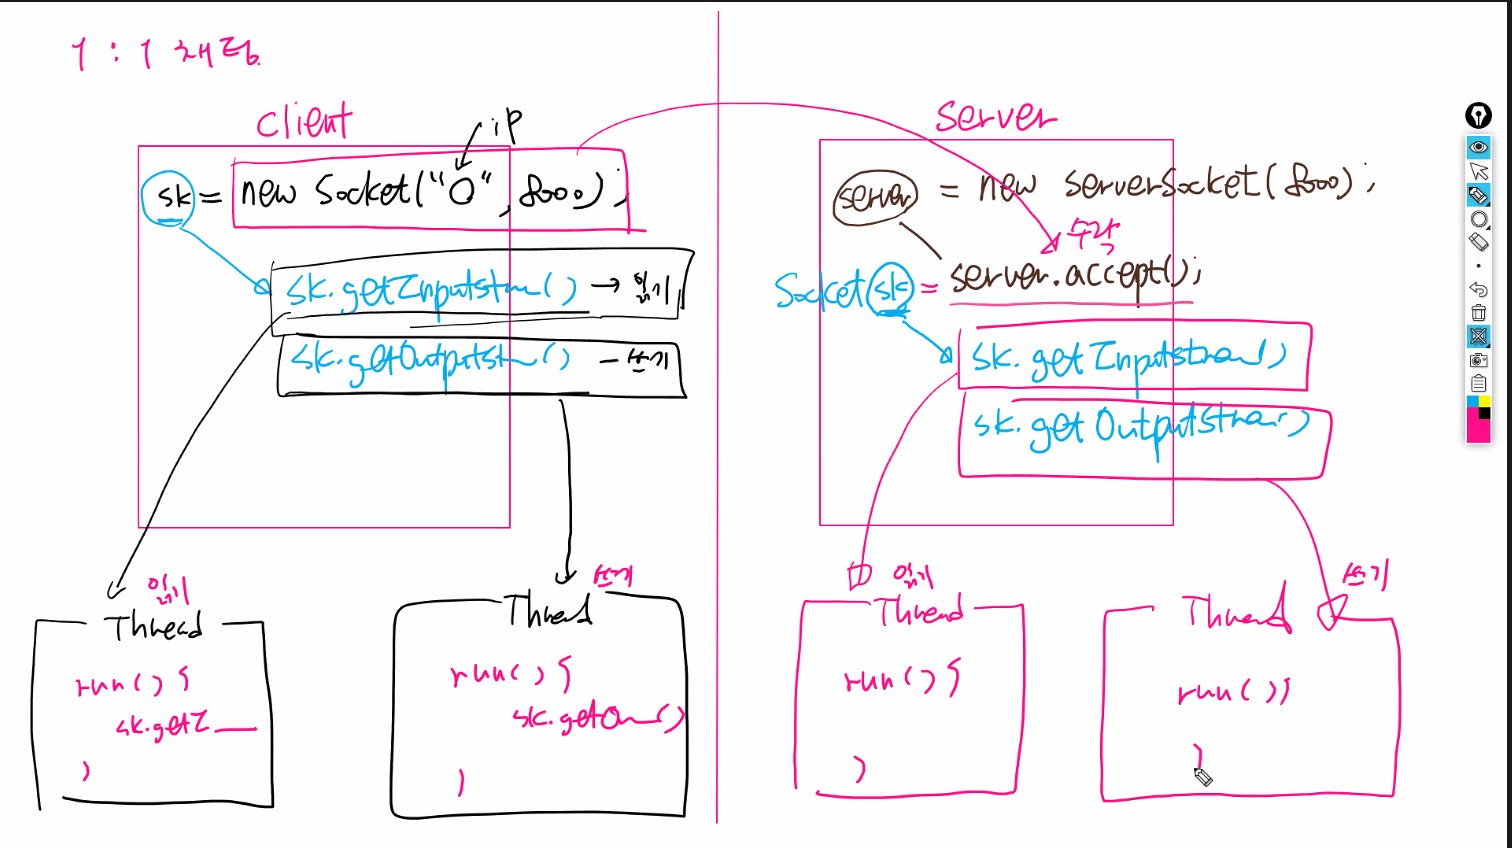 1 : 1 채팅
client
ip
sk = new Socket("O", 8000);
sk.getInputstrm() → 읽기
sk.getOutputstrm() - 쓰기
읽기
Thread
run() {
sk.getI
}
쓰기
Thread
run() {
sk.getOu()
}
server
server = new serverSocket(8000);
수락
Socket sk = server.accept();
sk.getInputstream()
sk.getOutputstream()
읽기
Thread
run() {
}
쓰기
Thread
run() {
}